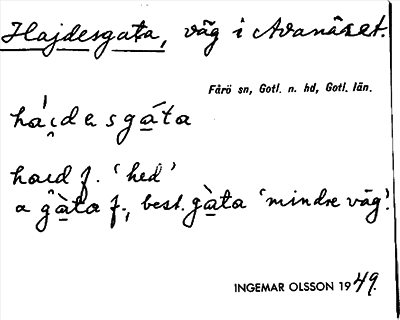 Hajdesgata, väg i Avanäset.
Fårö sn, Gotl. n. hd, Gotl. län.
há̀i̯dɐsga̲ta
haid f. 'hed'
a gà̲ta f., best. gà̲ta 'mindre väg'.
INGEMAR OLSSON 1949.